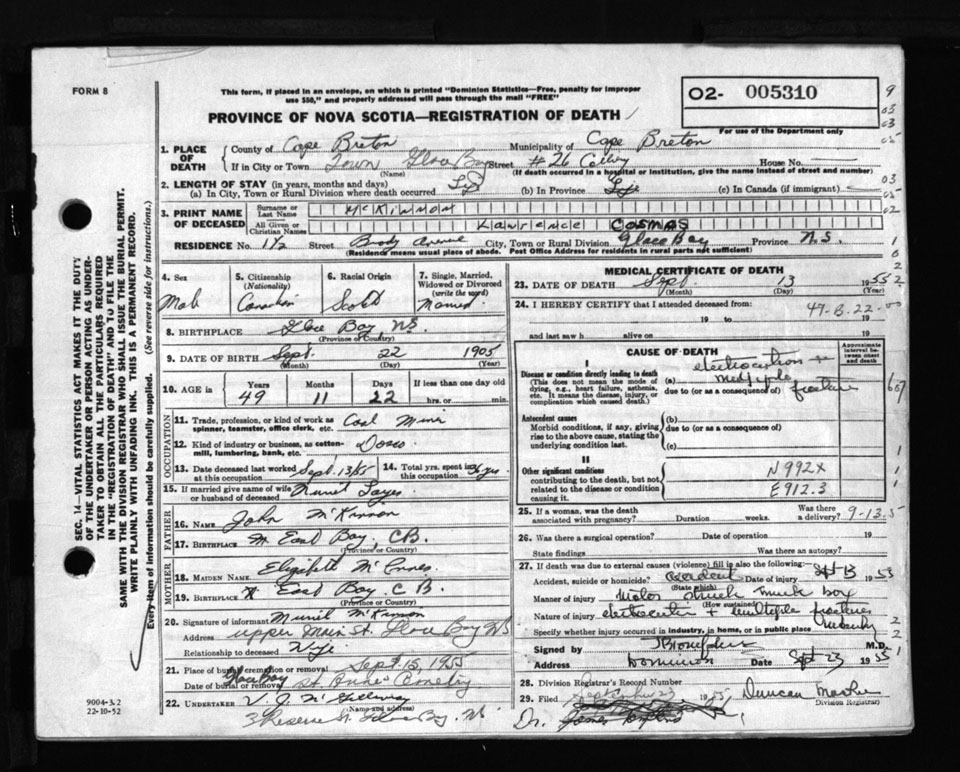 FORM 8
This form, if placed in an envelope, on which is printed "Dominion Statistics—Free, penalty for improper
use $50," and properly addressed will pass through the mail "FREE"
O2- 005310
For use of the Department only
PROVINCE OF NOVA SCOTIA—REGISTRATION OF DEATH
1. PLACE OF DEATH
County of Cape Breton Municipality of Cape Breton
If in City or Town Town Glace Bay Street #26 Colliery House No.
(Name) (If death occurred in a hospital or institution, give the name instead of street and number)
2. LENGTH OF STAY (in years, months and days)
(a) In City, Town or Rural Division where death occurred Life (b) In Province Life (c) In Canada (if immigrant)
3. PRINT NAME OF DECEASED
Surname or Last Name McKinnon
All Given or Christian Names Lawrence COSMAS
RESIDENCE No. 112 Street Brody Avenue City, Town or Rural Division Glace Bay Province N.S.
(Residence means usual place of abode. Post Office Address for residents in rural parts not sufficient)
4. Sex 5. Citizenship (Nationality) 6. Racial Origin 7. Single, Married, Widowed or Divorced (write the word)
Male Canadian Scotch Married
8. BIRTHPLACE Glace Bay, NS
(Province or Country)
9. DATE OF BIRTH Sept. 22 1905
(Month) (Day) (Year)
10. AGE in Years Months Days If less than one day old
49 11 22 hrs. or min.
OCCUPATION
11. Trade, profession, or kind of work as spinner, teamster, office clerk, etc. Coal Miner
12. Kind of industry or business, as cotton-mill, lumbering, bank, etc. Dosco
13. Date deceased last worked at this occupation Sept. 13/55 14. Total yrs. spent in this occupation 36 yrs
15. If married give name of wife or husband of deceased Muriel
FATHER
16. NAME John McKinnon
17. BIRTHPLACE East Bay, C.B.
(Province or Country)
MOTHER
18. MAIDEN NAME Elizabeth McInnes
19. BIRTHPLACE East Bay, C B
(Province or Country)
20. Signature of informant Muriel McKinnon
Address upper Main St. Glace Bay NS
Relationship to deceased Wife
21. Place of burial, cremation or removal Glace Bay
Date of burial or removal Sept. 15, 1955
St. Anne's Cemetery
22. UNDERTAKER V. J. McGillivray
(Name and address)
Reserve St. Glace Bay. NS
MEDICAL CERTIFICATE OF DEATH
23. DATE OF DEATH Sept. 13 1955
(Month) (Day) (Year)
24. I HEREBY CERTIFY that I attended deceased from:
19 to 19
and last saw h alive on 19
CAUSE OF DEATH
Approximate interval between onset and death
I
Disease or condition directly leading to death
(This does not mean the mode of dying, e.g., heart failure, asthenia, etc. It means the disease, injury, or complication which caused death.)
(a) electrocution + multiple fracture
due to (or as a consequence of)
Antecedent causes
Morbid conditions, if any, giving rise to the above cause, stating the underlying condition last.
(b)
due to (or as a consequence of)
(c)
II
Other significant conditions
contributing to the death, but not related to the disease or condition causing it.
N992X
E912.3
25. If a woman, was the death associated with pregnancy? Duration weeks. Was there a delivery?
9-13.5
26. Was there a surgical operation? Date of operation 19
State findings Was there an autopsy?
27. If death was due to external causes (violence) fill in also the following:
Accident, suicide or homicide? accident Date of injury Sept 13 1955
(State which)
Manner of injury Motor struck box
(How sustained)
Nature of injury electrocution + multiple fractures
Specify whether injury occurred in industry, in home, or in public place industry
Signed by M.D.
Address Dominion Date Sept 23 1955
28. Division Registrar's Record Number
29. Filed September 23 1955 Duncan
(Division Registrar)
Dr. James
SEC. 14—VITAL STATISTICS ACT MAKES IT THE DUTY
OF THE UNDERTAKER OR PERSON ACTING AS UNDER-
TAKER TO OBTAIN ALL THE PARTICULARS REQUIRED
IN THE "REGISTRATION OF DEATH" AND TO FILE THE
SAME WITH THE DIVISION REGISTRAR WHO SHALL ISSUE THE BURIAL PERMIT.
WRITE PLAINLY WITH UNFADING INK. THIS IS A PERMANENT RECORD.
Every item of information should be carefully supplied. (See reverse side for instructions.)
9004-3.2
22-10-52